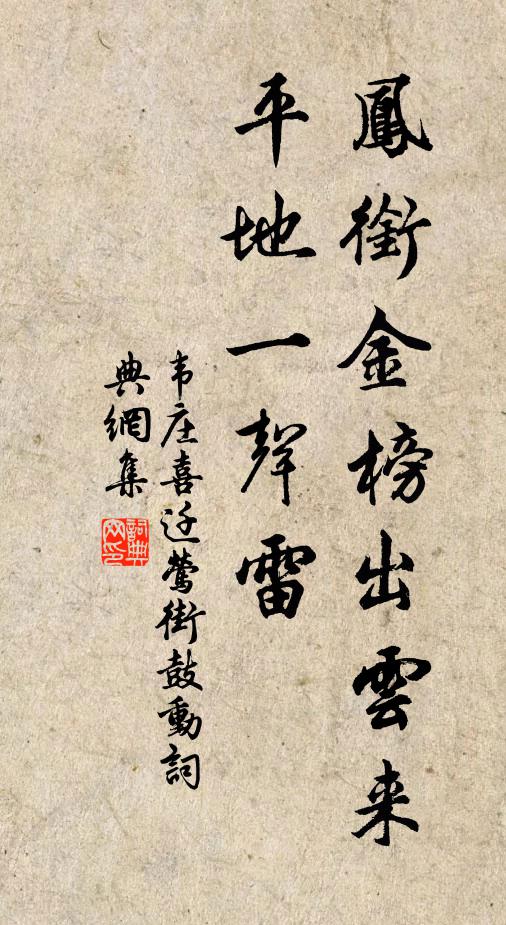 鳳銜金榜出雲来
平地一聲雷
韦庄喜迁莺街鼓動詞
典網集
詞典网印